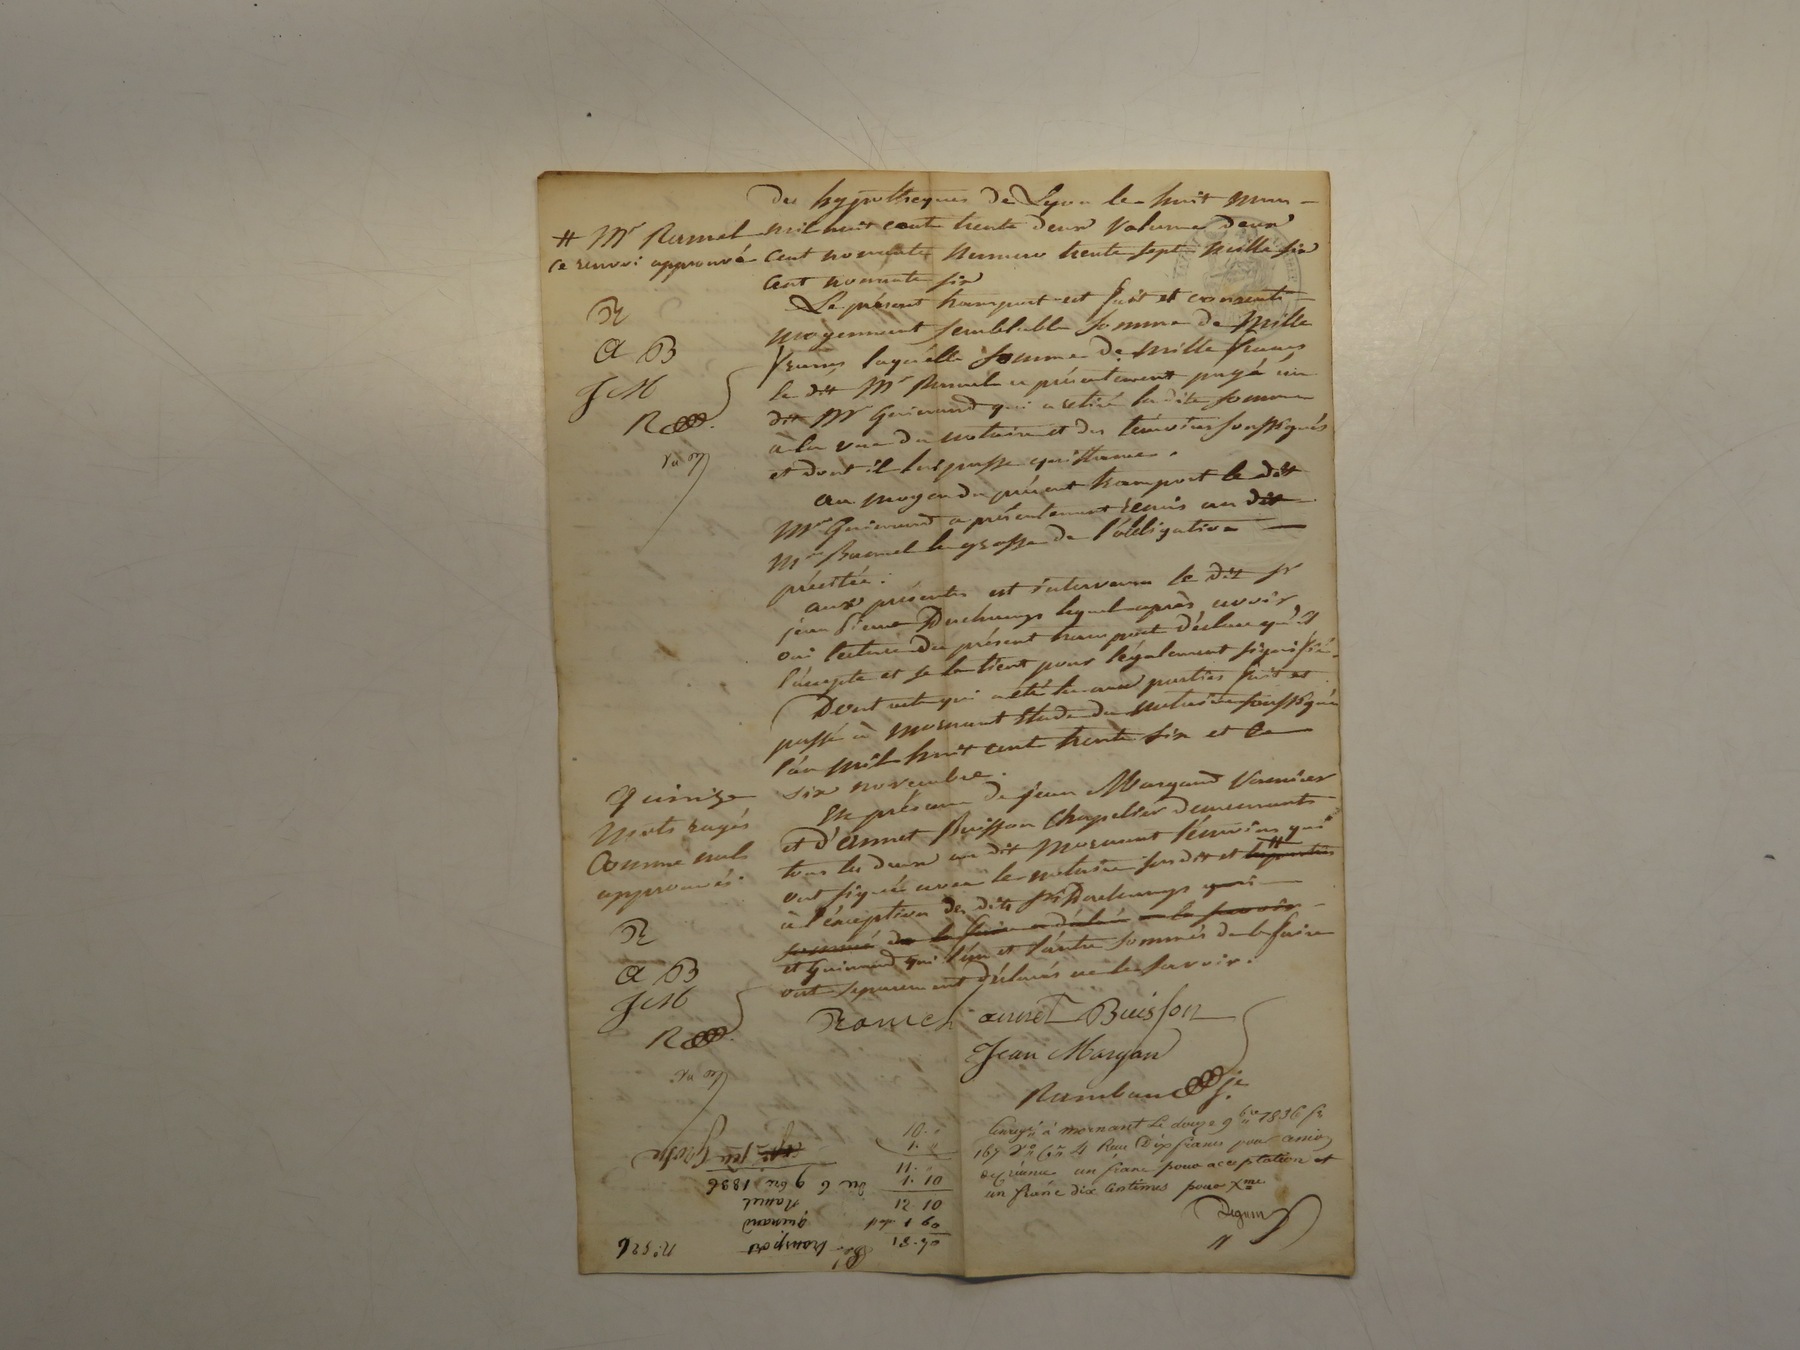 des hypotheques de Lyon le huit mars
mil huit cent trente deux volume deux
cent nonante numero trente sept mille six
cent nonante six
# Mr Ramel
ce renvoi approuvé
R
A B
J M
R
Le présent transport est fait et consenti
moyennant semblable somme de mille
francs laquelle somme de mille francs
le dit Mr Ramel a présentement payé au
dit Mr Guinand qui a retiré la dite somme
à la vue du notaire et des témoins soussignés
et dont il lui passe quittance.
au moyen du présent transport le dit
Mr Guinand a présentement remis au dit
Mr Ramel la grosse de l'obligation
précitée.
aux présentes est intervenu le dit Sr
jean Pierre Duchamp lequel après avoir
oui lecture du présent transport déclare qu'il
l'accepte et se le tient pour légalement signifié.
Dont acte qui a été lu aux parties fait et
passé à mornant Etude du notaire soussigné
l'an mil huit cent trente six et le
six novembre.
En présence de jean Margand Vannier
et d'annet Buisson Chapelier demeurants
tous les deux au dit mornant témoins qui
ont signé avec le notaire susdit et #
à l'exception des dits Srs Duchamp qui
de le faire a déclaré ne le savoir
et Guinand qui l'un et l'autre sommés de le faire
ont séparement déclarés ne le savoir.
quinze
mots rayés
comme nuls
approuvés.
R
A B
J M
R
Ramel annet Buisson
Jean Margan
Rambaud
Enregé à mornant le douze 9bre 1836 fo
167 Vo Cs 4 Reçu Dix francs pour
un franc pour acceptation et
un franc dix centimes pour Xme
No 526
transport
guinand
Ramel
du 6 9bre 1836
Grosse
10.
1.
11.
1. 10
12 10
1 09